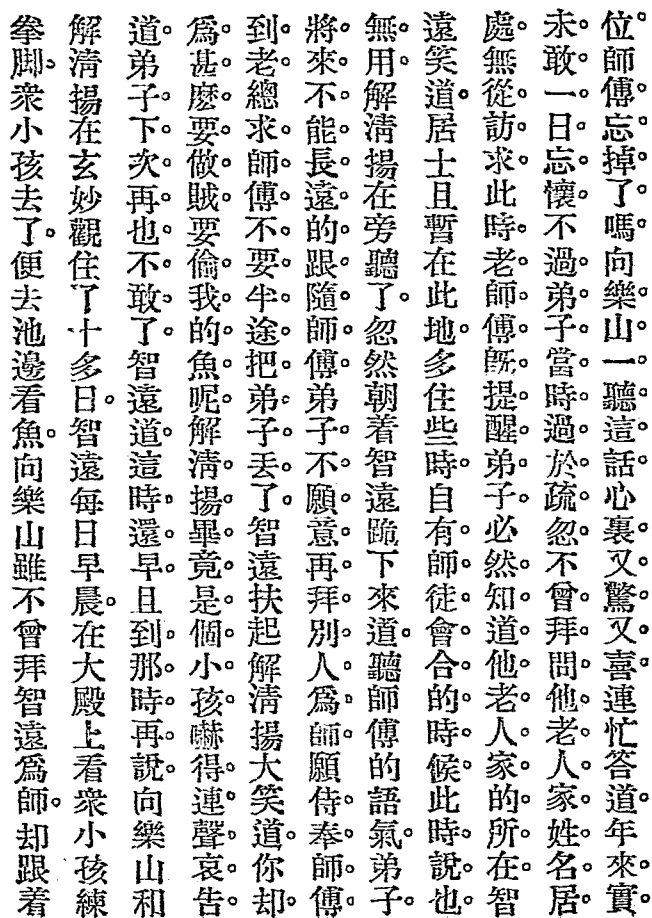 位師傅忘掉了嗎向樂山一聽這話心裏又驚又喜連忙答道年來實
未敢一日忘懷不過弟子當時過於疏忽不曾拜問他老人家姓名居
處無從訪求此時老師傅旣提醒弟子必然知道他老人家的所在智
遠笑道居士且暫在此地多住些時自有師徒會合的時候此時說也
無用。解清揚在旁聽了。忽然朝着智遠跪下來道。聽師傅的語氣。弟子。
將來不能長遠的跟隨師傅弟子不願意再拜別人爲師願侍奉師傅
到老總求師傅不要半途把弟子丢了。智遠扶起解清揚大笑道。你却
爲甚麽要做賊要偷我的魚呢。解清揚畢竟是個小孩嚇得連聲哀告
道。弟子下次再也不敢了。智遠道。這時還早且到那時再說。向樂山和
解清揚在玄妙觀住了十多日。智遠每日早晨。在大殿上看衆小孩練
拳脚。衆小孩去了。便去池邊看魚。向樂山雖不曾拜智遠爲師。却跟着